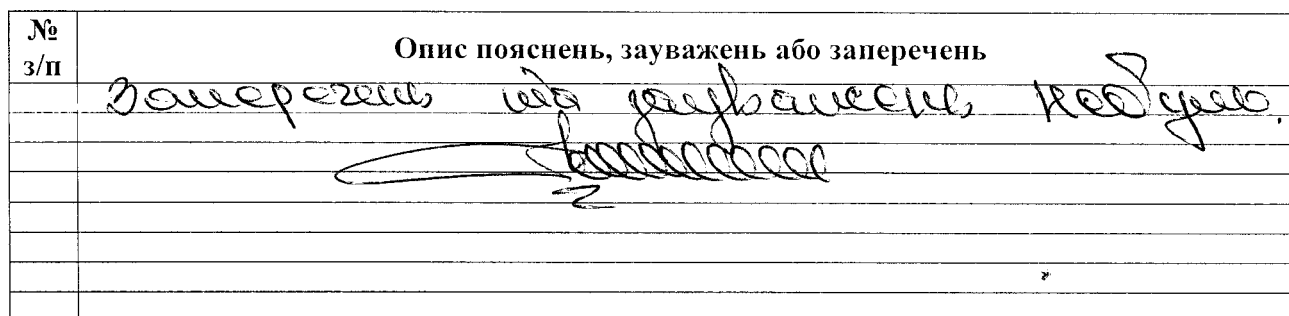 № з/п
Опис пояснень, зауважень або заперечень
Заперечень та зауважень небуло.